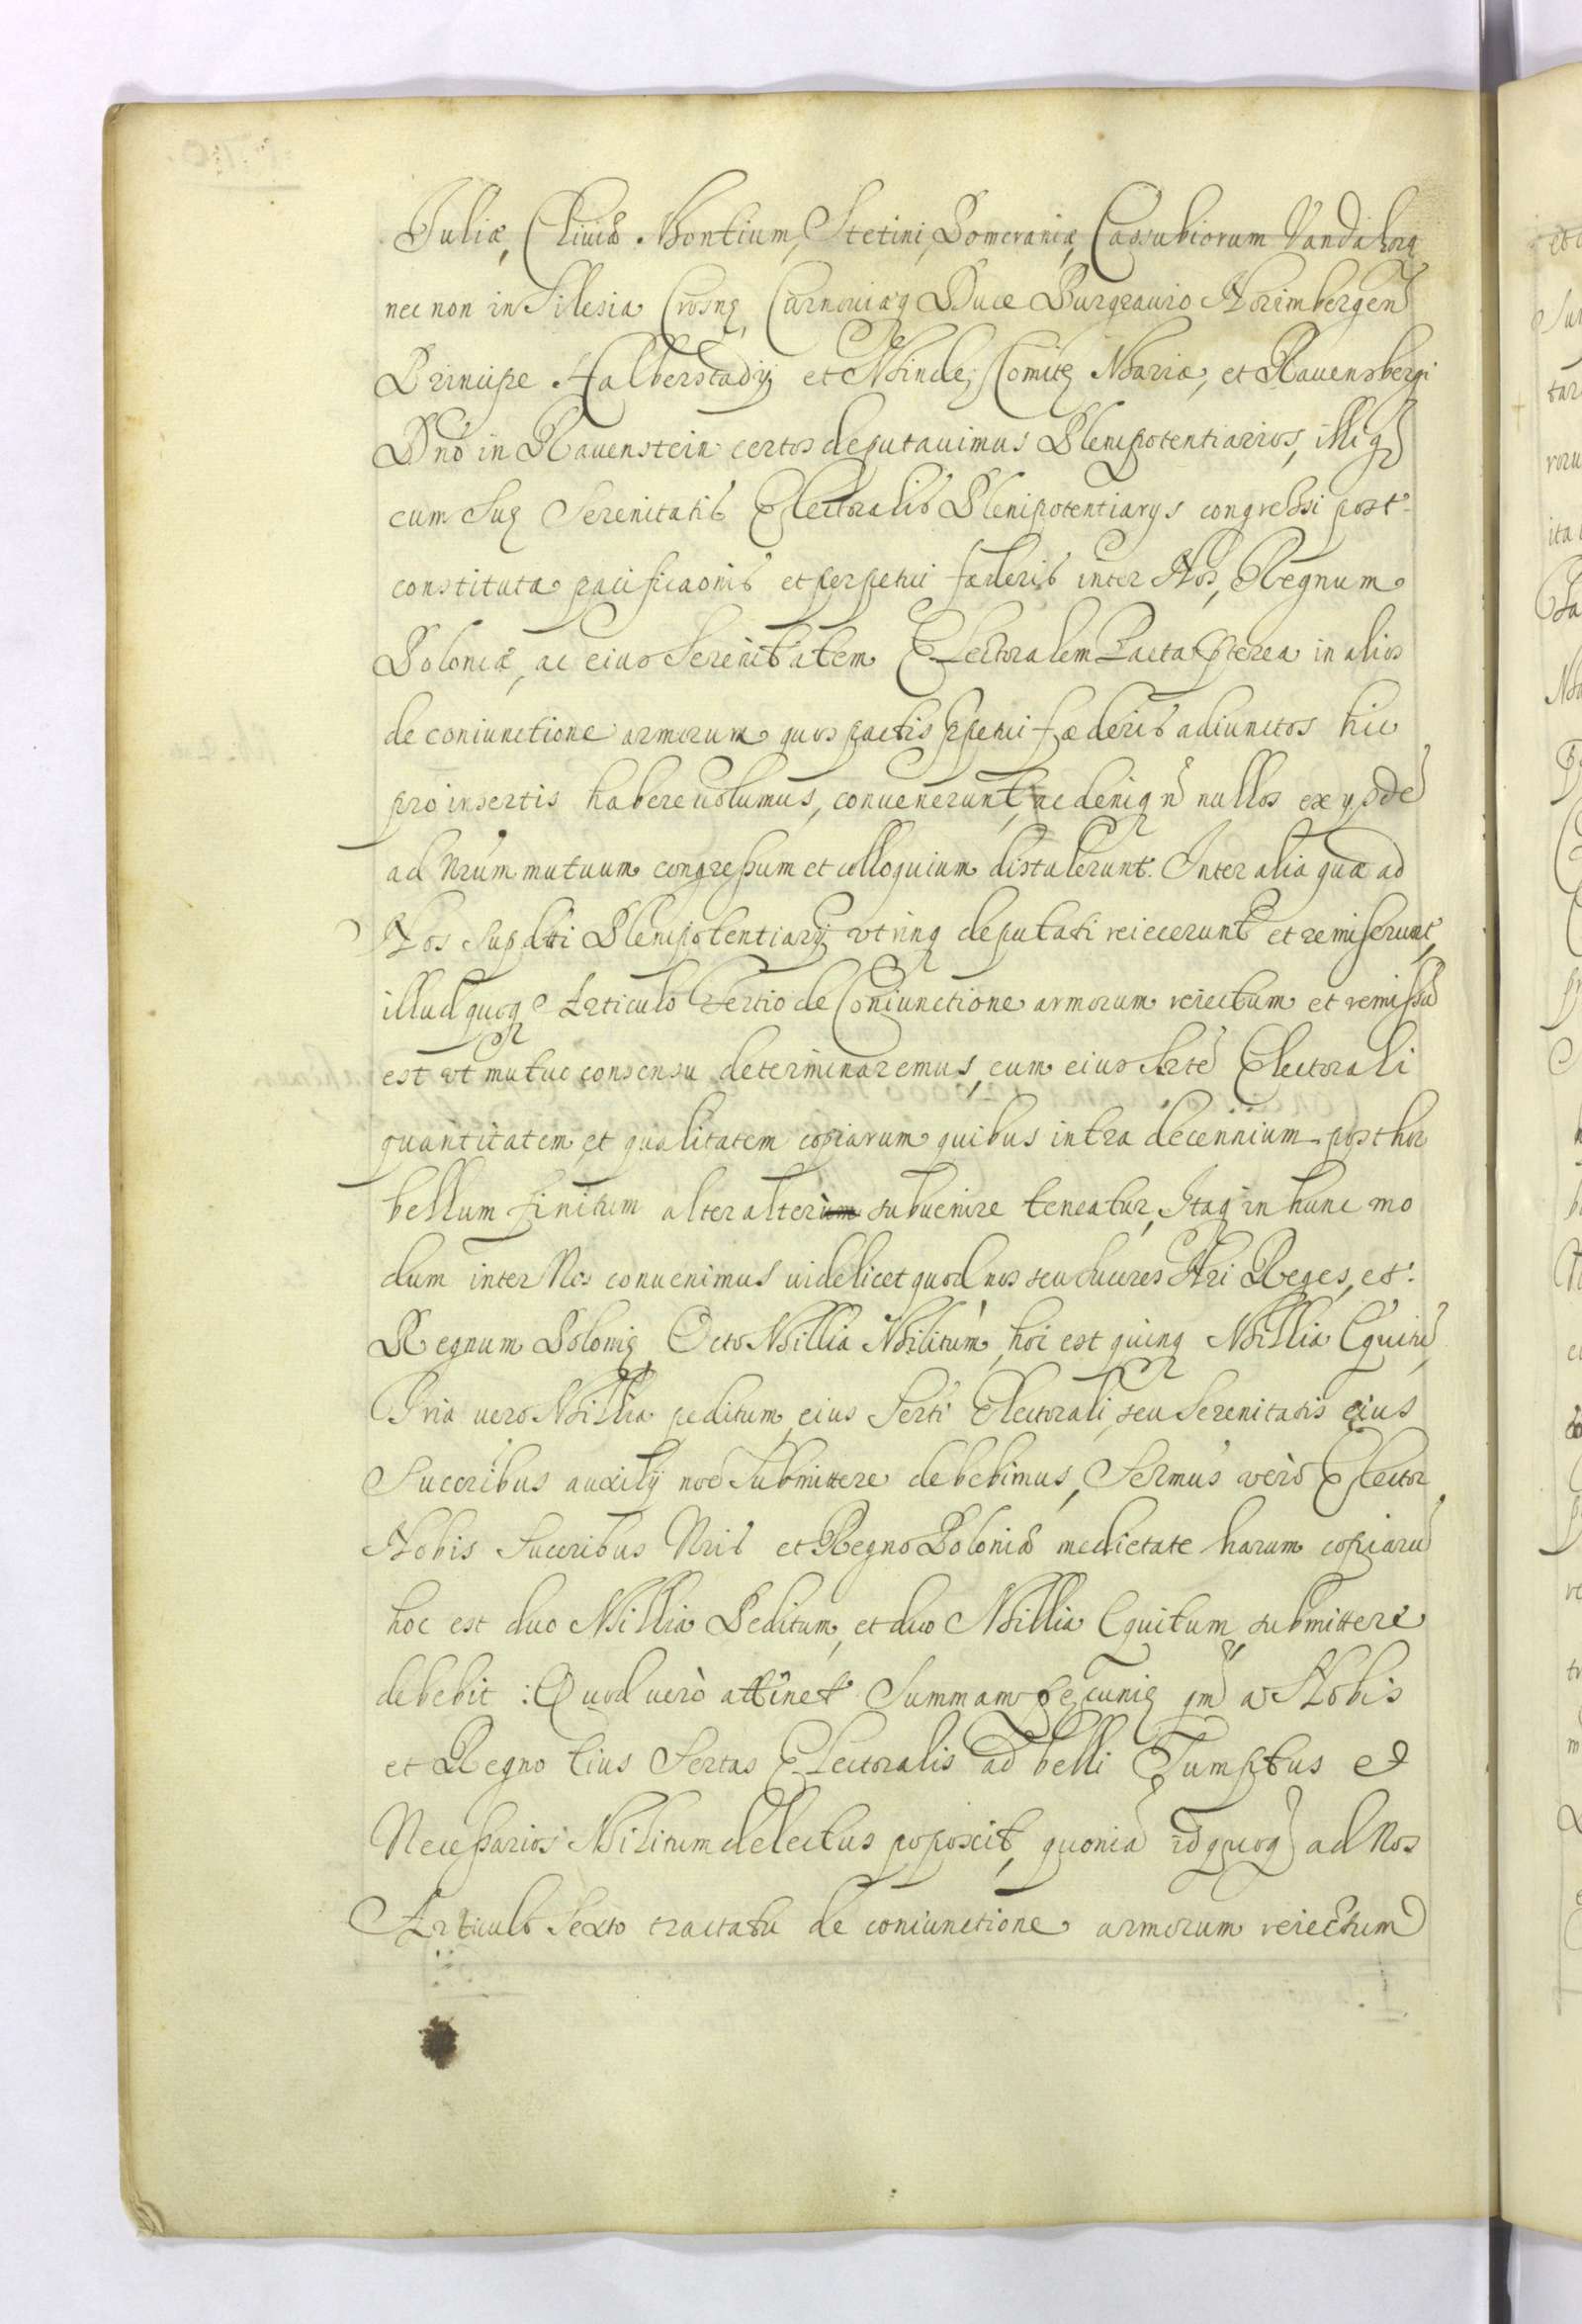 Juliæ, Cliviæ Montium, Stetini, Pomeraniæ, Cassubiorum Vandalorq
nec non in Silesia Crosnę, Carnoviæq Duce Burgravio Norimbergen
Principe Halberstadij et Mindę, Comitę Mariæ, et Ravensbergi
Dno in Ravenstein certos deputavimus Plenipotentiarios, illiq
cum Suę Serenitatis Electoralis Plenipotentiarys congressi post
constituta pacificaonis et perpetui fæderis inter Nos, Regnum
Poloniæ, ac eius Serenitatem Electoralem Pacta pterea in alios
de coniunctione armorum quos pactis ppetui fæderis adiunctos hic
pro insertis habere volumus, convenerunt, ac deniq nō nullos ex ysdē
ad Nrum mutuum congressum et colloquium distulerunt. Inter alia quæ ad
Nos supdtti Plenipotentiarij utrinq deputati reiecerunt et remiserunt,
illud quoq Articulo tertio de Coniunctione armorum reiectum et remissū
est ut mutuo consensu determinaremus, cum eius Srte Electorali
quantitatem et qualitatem copiarum quibus intra decennium post hoc
bellum finitum alter alterium subvenire teneatur, Itaq in hunc mo
dum inter Nos convenimus videlicet quod nos seu Succres Nri Reges, et
Regnum Polonię Octo Millia Militum, hoc est quinq Millia Equitū,
Tria vero Millia peditum eius Serti Electorali, seu Serenitatis eius
Succribus auxilij noe Submittere debebimus, Sermus verò Elector
Nobis Succribus Nris et Regno Poloniæ medietate harum copiarū
hoc est duo Millia Peditum, et duo Millia Equitum submittere
debebit: Quod verò attinet Summam pecunię qm a Nobis
et Regno Eius Sertas Electoralis ad belli Sumptus et
Necessarios Militum delectus poposcit, quoniā id quoq ad Nos
Articulo Sexto tractatu de coniunctione armorum reiectum